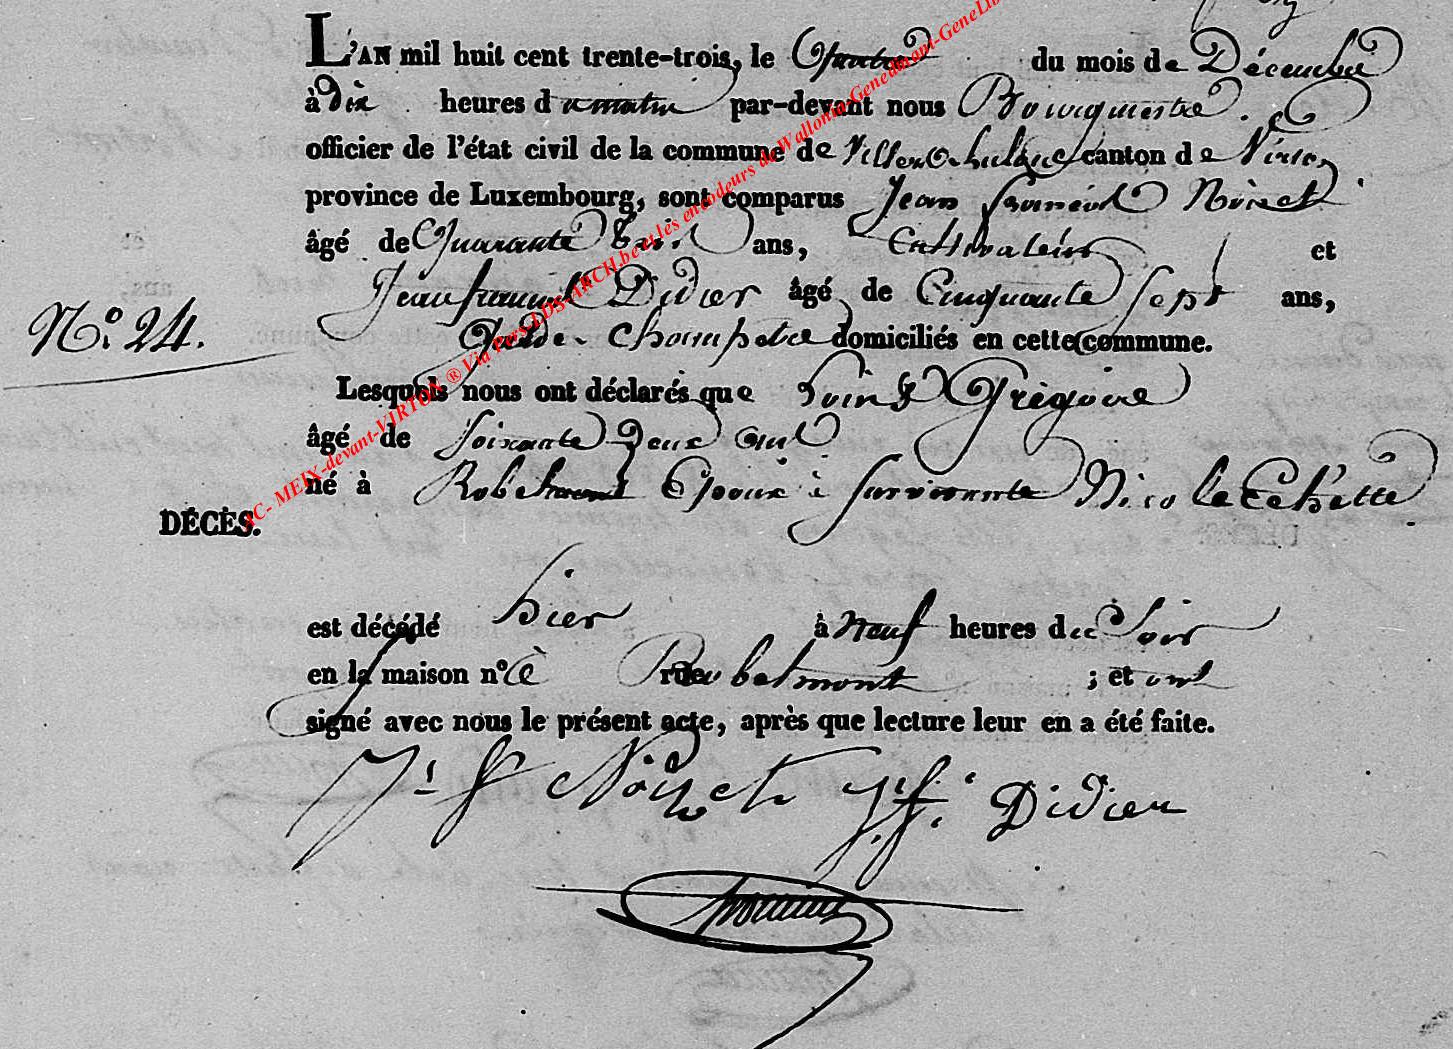 L'AN mil huit cent trente-trois, le Quatre du mois de Décembre
à dix heures du matin par-devant nous Bourguestre
officier de l'état civil de la commune de canton de Virton
province de Luxembourg, sont comparus Jean François Noiret
âgé de Quarante trois ans, Cultivateur et
Jean françois Didier âgé de Cinquante Sept ans,
Garde Champetre domiciliés en cette commune.
N.o 24.
Lesquels nous ont déclarés que Grégoire
âgé de Soixante Deux ans
né à Robelmont Epoux à Survivante Nicole
DÉCÈS.
est décédé hier à neuf heures du Soir
en la maison no è rue Robelmont ; et ont
signé avec nous le présent acte, après que lecture leur en a été faite.
J. f Noiret J. f. Didier
AC- MEIX-devant-VIRTON ® Via Pers-LDS-ARCH.be et les encodeurs de Wallonia-Geneamant-GeneLib